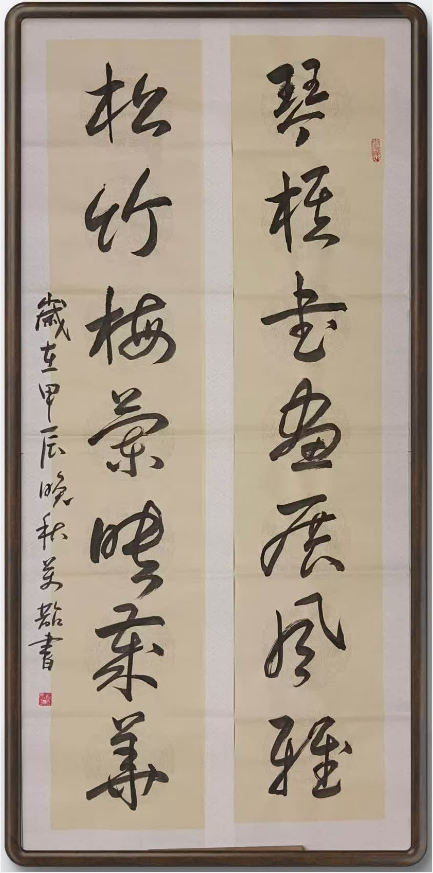 琴棋書畫展風雅
松竹梅蘭映歲華
歲在甲辰晚秋書